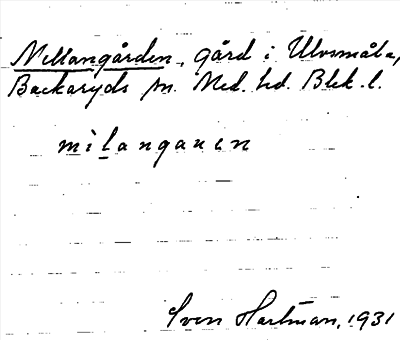 Mellangården, gård i Ulvsmåla,
Backaryds sn. Med. hd. Blek. l.
milangauen
Sven Hartman, 1931